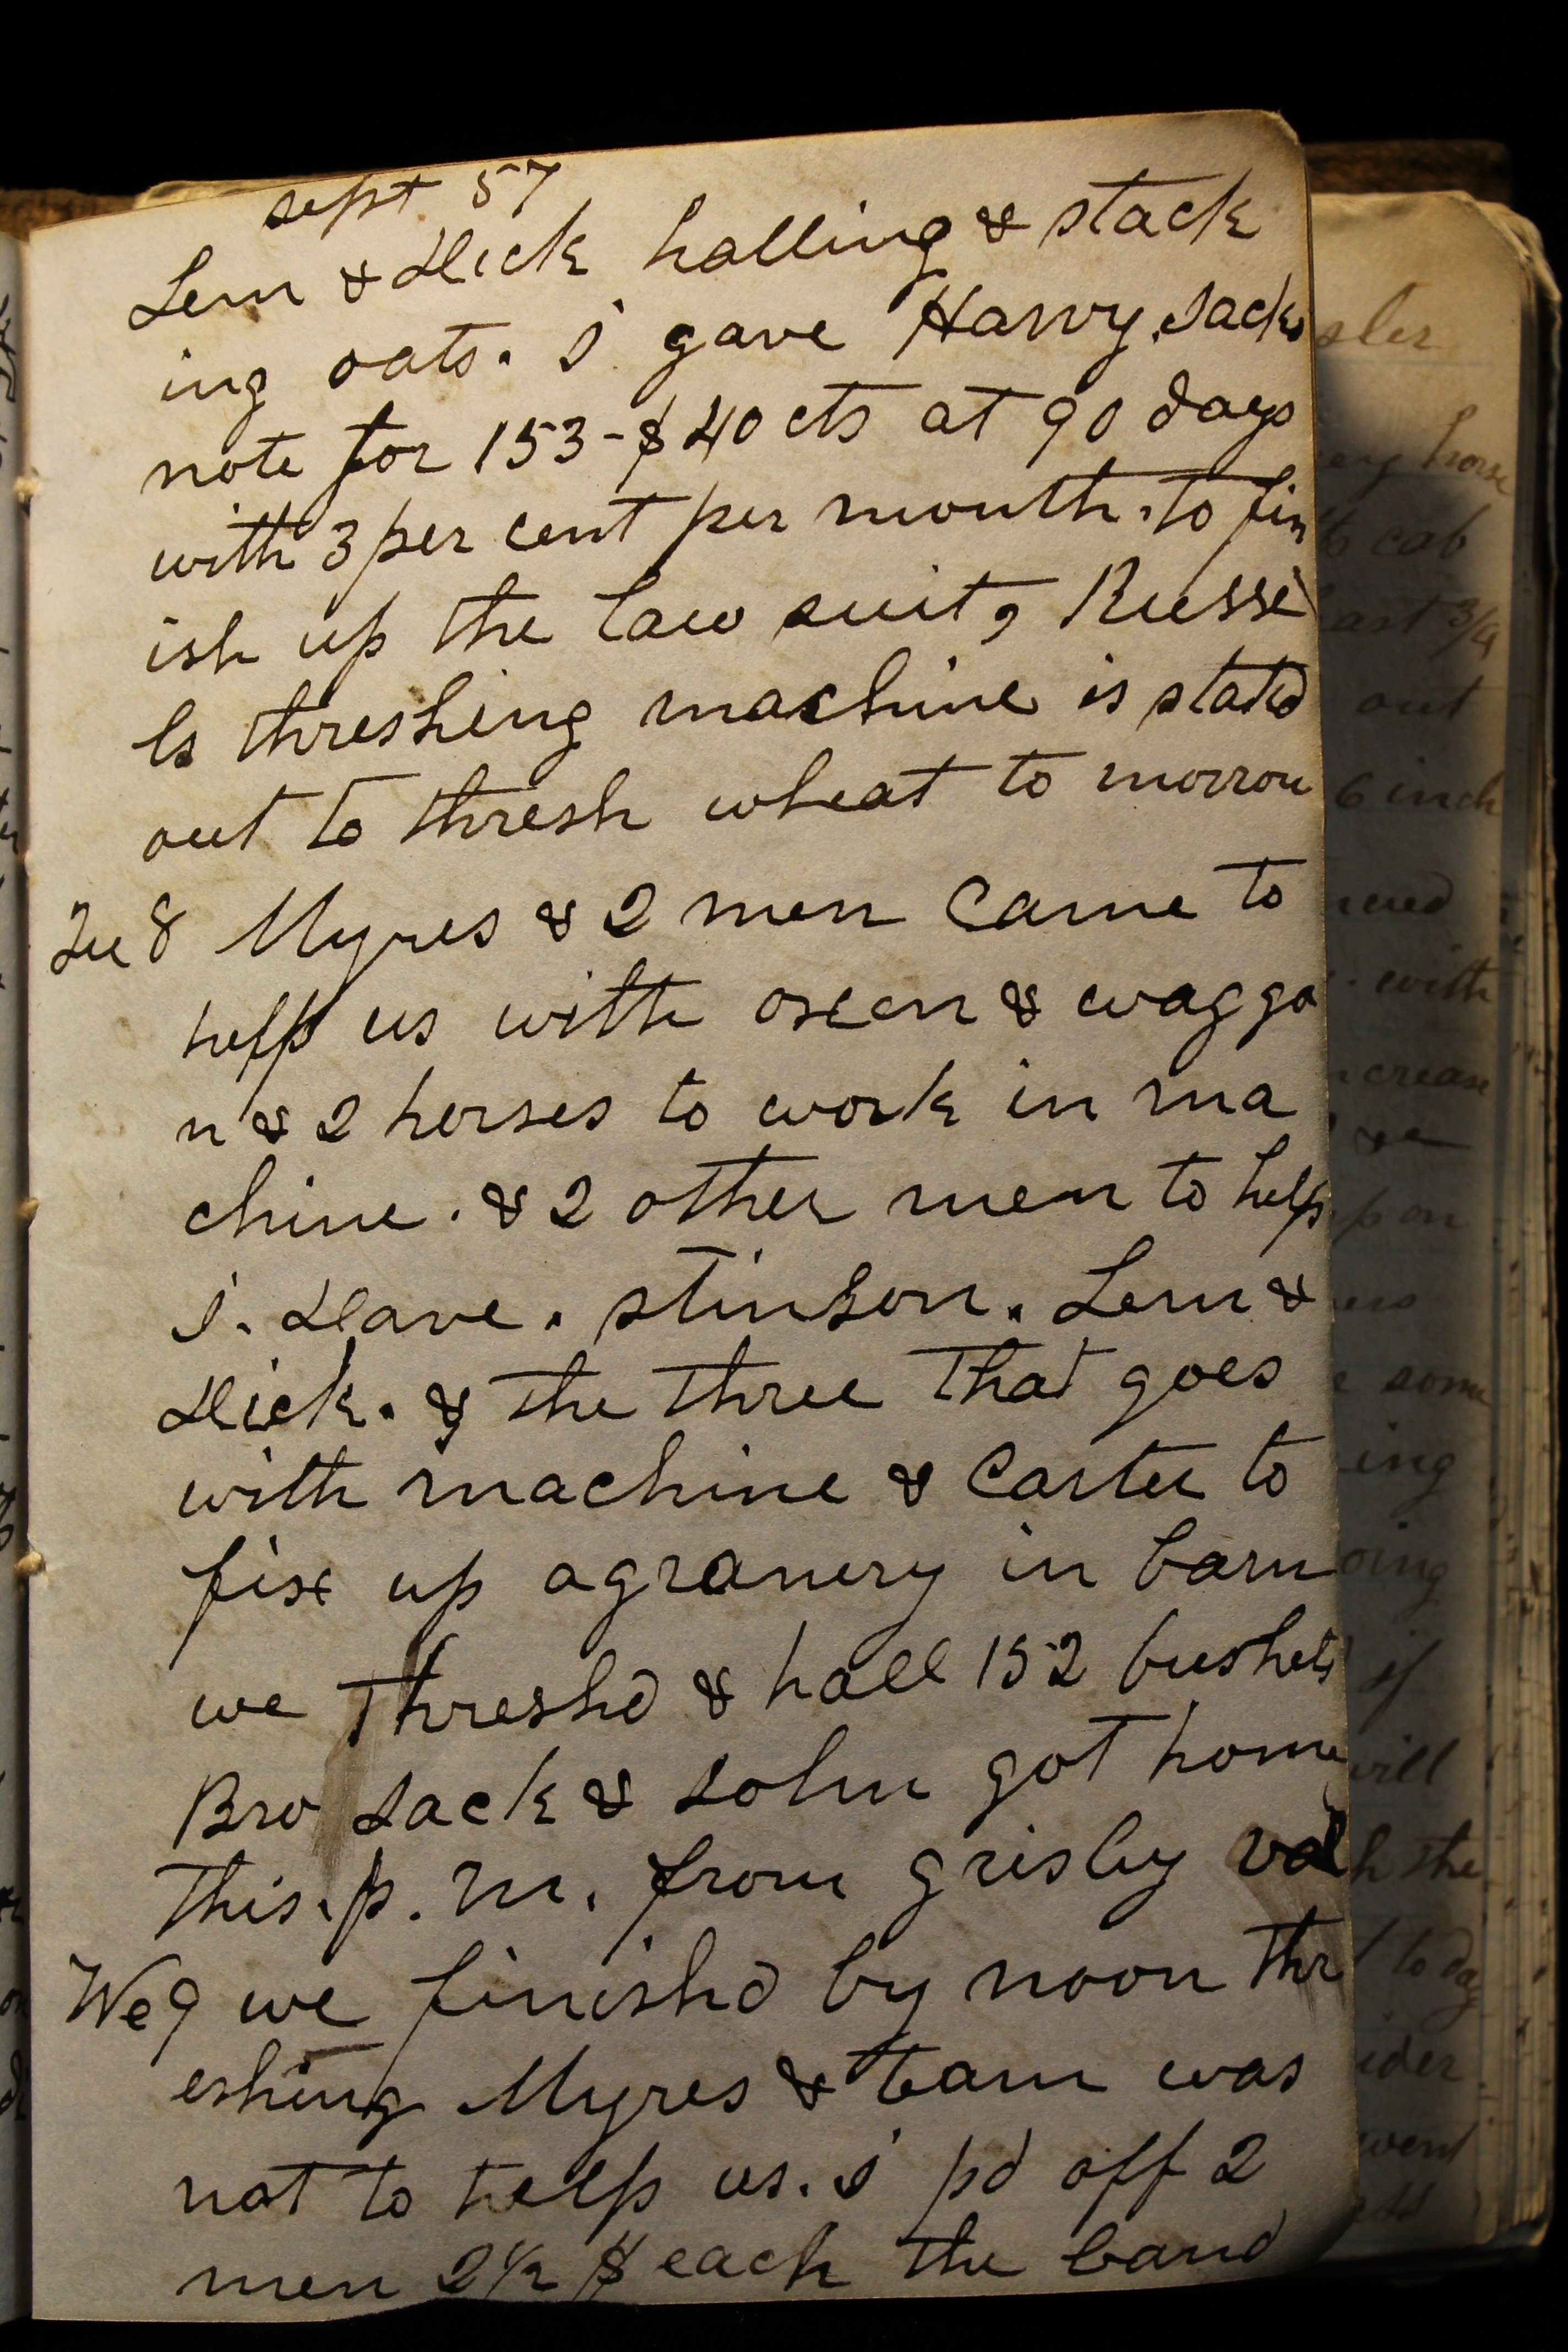 sept 57
Lem & Dick halling & stack
ing oats. I gave Harvy Jacks
note for 153-$40 cts at 90 days
with 3 per cent per mounth. to fin
ish up the law suit, Russe
ls threshing machine is statd
out to thresh wheat to morrow
Tu 8 Myres & 2 men came to
help us with oxen & waggo
n & 2 horses to work in ma
chine. & 2 other men to help
I. Dave. stinson. Lem &
Dick. & the three that goes
with machine & Carter to
fix up a granery in barn
we threshd & hall 152 bushels
Bro Jack & John got home
this. p. m. from grisby val
We 9 we finishd by noon thr
eshing Myres & team was
not to help us. I pd off 2
men 2 1/2 $ each the band
sler
ey horse
cab
ast 3/4
out
6 inch
with
crease
on
some
ing
oing
if
will
h the
to day
ider
went